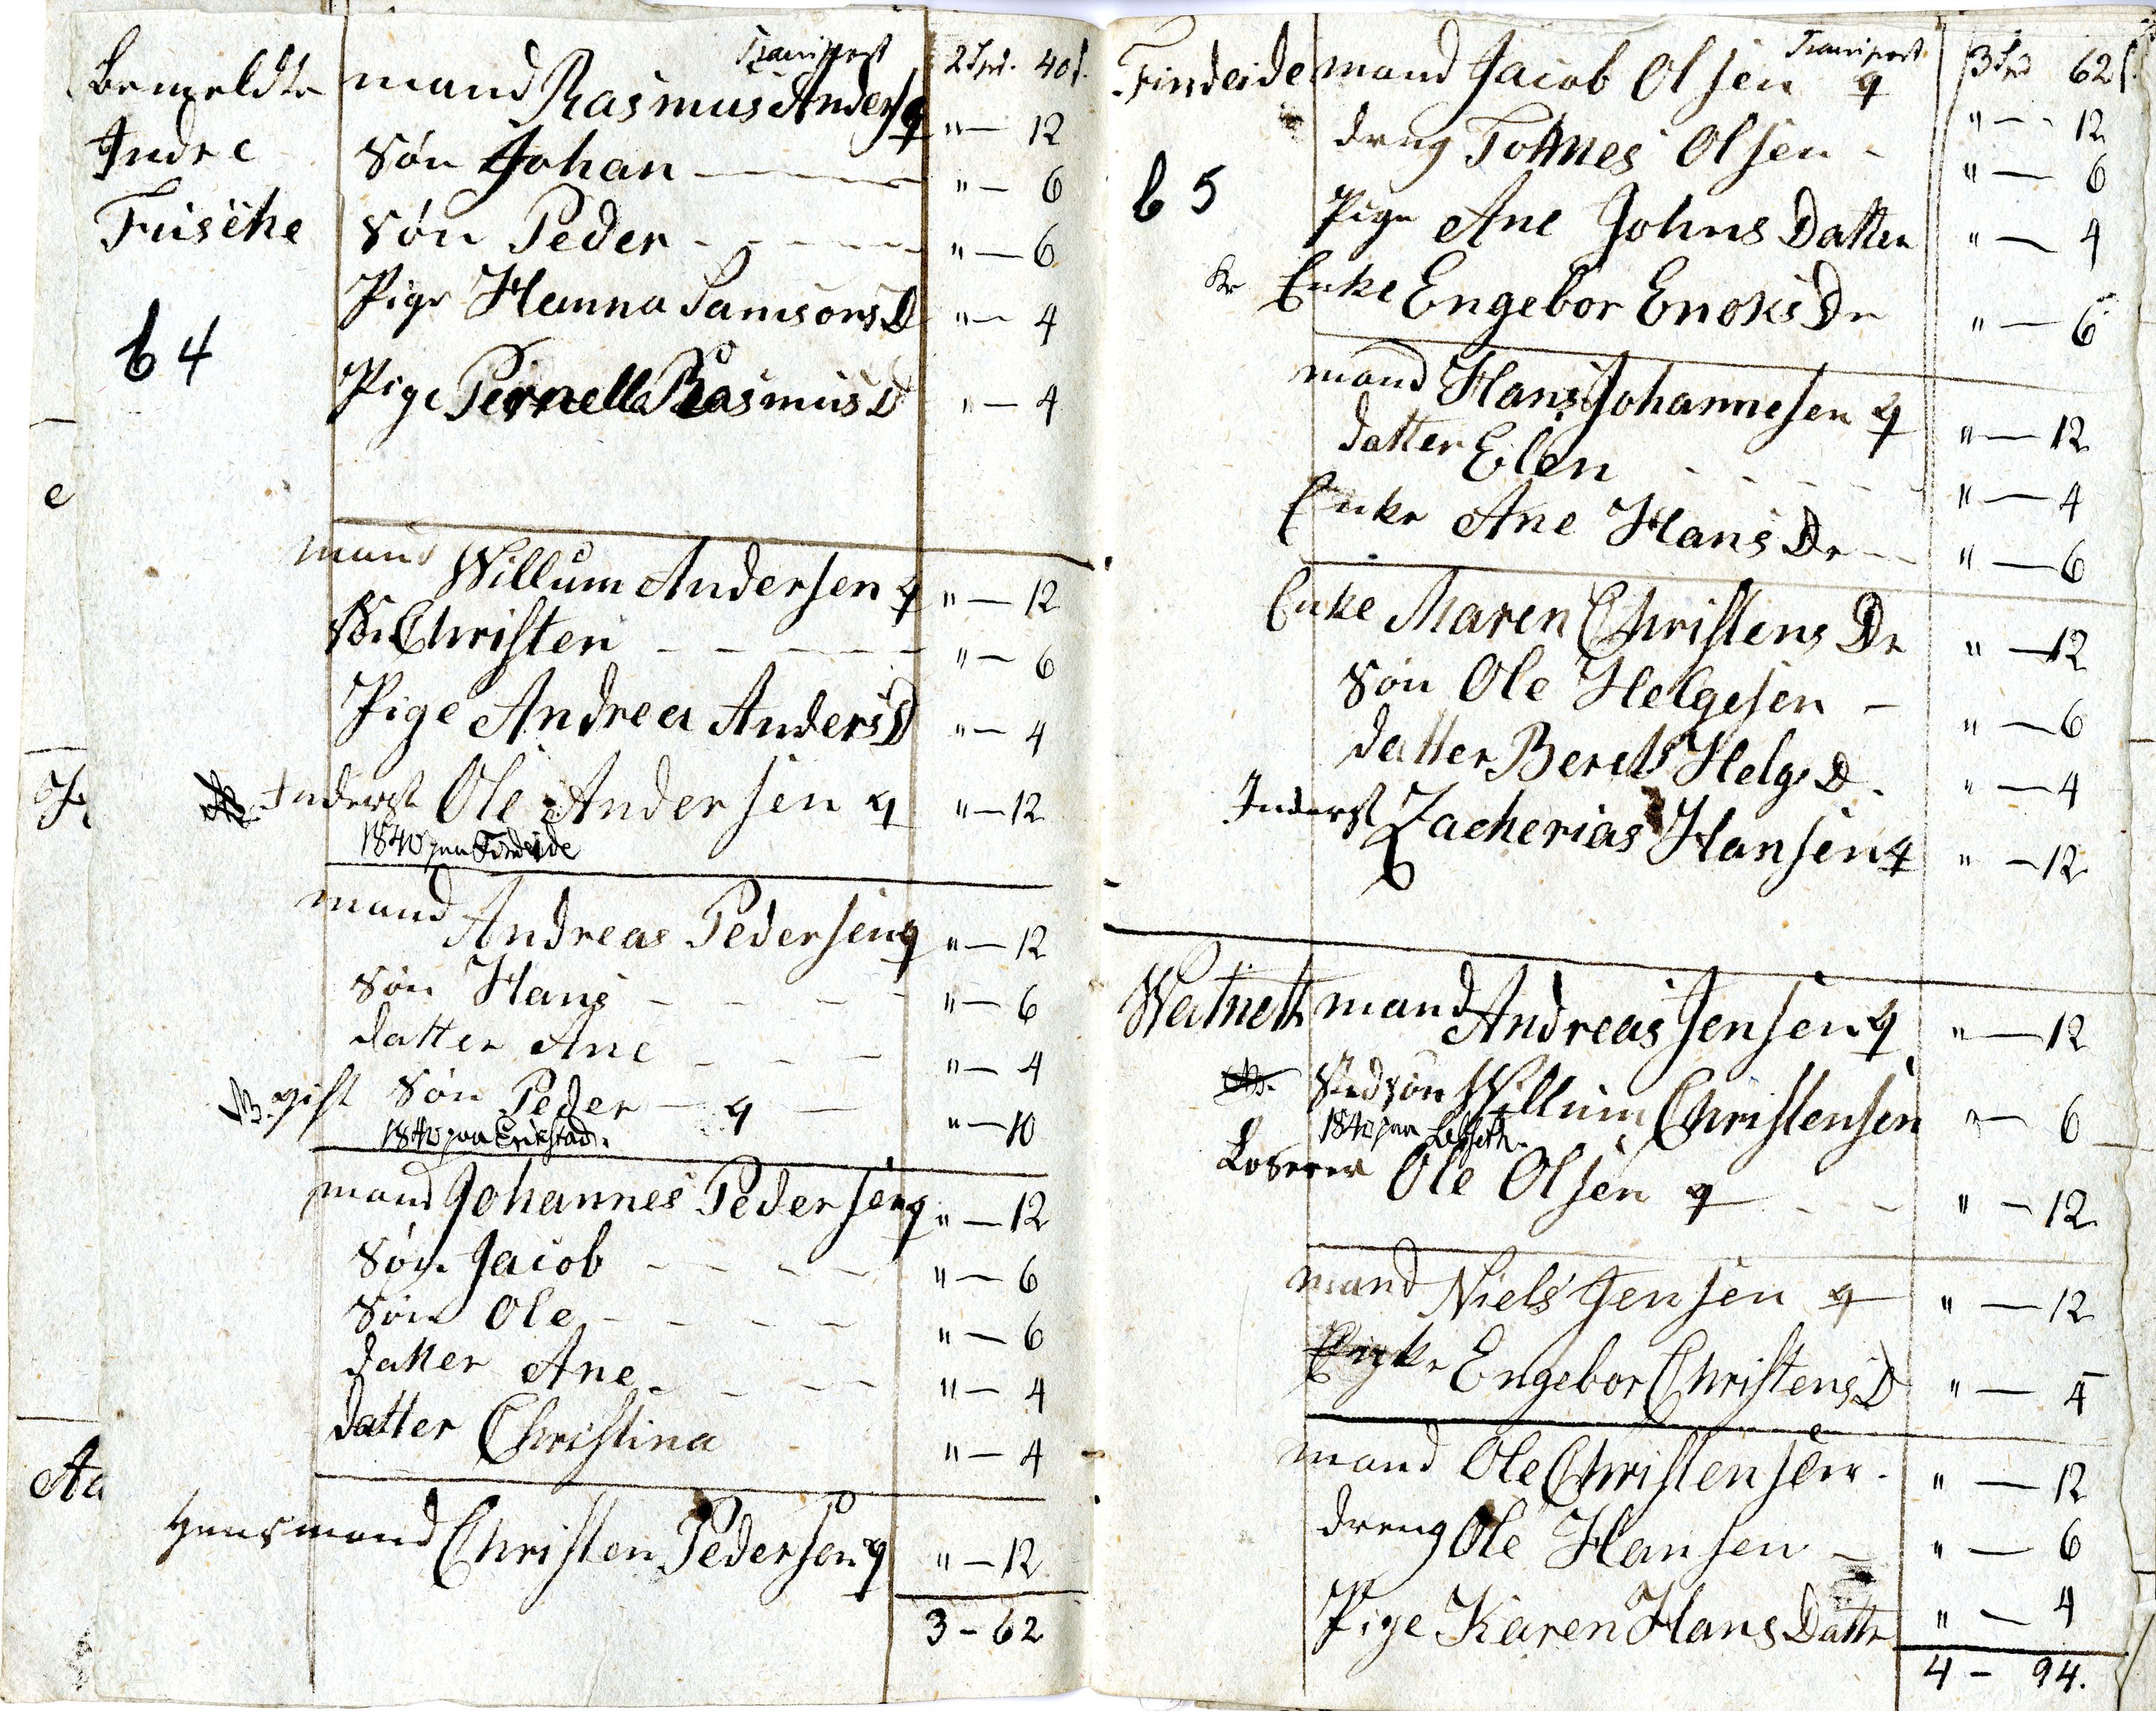 Transport 2 Spd. 40 s.
bemeldte mand Rasmus Anders q " — 12
Indre Søn Johan " — 6
Fuisehe Søn Peder " — 6
Pige Hanna SamsonsD " — 4
b 4
Pige Pernella RasmusD " — 4
mand Willum Andersen q " — 12
Sn Christen " — 6
Pige Andrea AndersD " — 4
Inderst Ole Andersen q " — 12
1840 paa Findeide
mand Andreas Pedersen q " — 12
Søn Hans " — 6
datter Ane " — 4
NB. gift Søn Peder — q — " — 10
1840 paa Erikstad.
mand Johannes Pedersen q " — 12
Søn Jacob " — 6
Søn Ole " — 6
datter Ane " — 4
datter Christina " — 4
Huusmand Christen Pedersen q " — 12
3 - 62
Transport 3 Spd 62 s.
Findeide mand Jacob Olsen q " — 12
dreng Tolines Olsen - " — 6
b 5
Pige Ane Johns Datter " — 4
Enke Engebor Enoks Dr " — 6
mand Hans Johannesen q " — 12
datter Elen " — 4
Enke Ane Hans Dr " — 6
Enke Maren Christens Dr " — 12
Søn Ole Helgesen - " — 6
datter Berets Helgs D. " — 4
Inderst Zacherias Hansen q " — 12
Watneth mand Andreas Jensen q " — 12
Stedsøn Willum Christensen " — 6
1840 paa
Loserer Ole Olsen q " — 12
mand Niels Jensen q " — 12
Engebor ChristensD " — 4
mand Ole Christensen. " — 12
dreng Ole Hansen " — 6
Pige Karen Hans Datte " — 4
4 - 94.